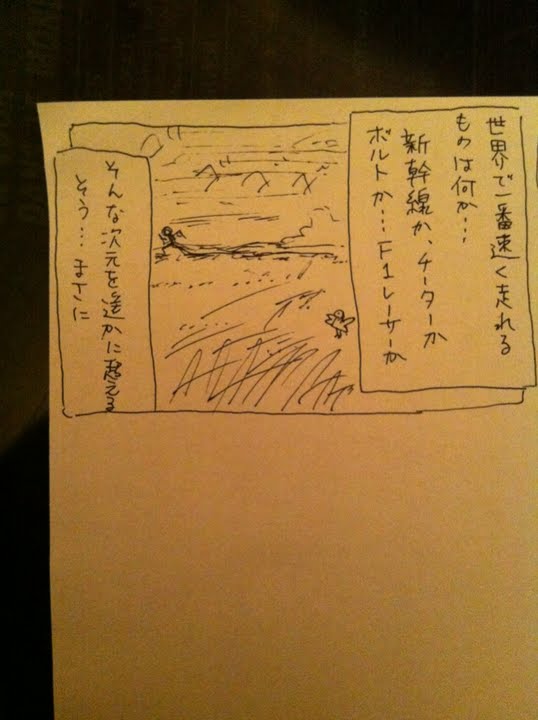 世界で一番速く走れる
ものは何か…
新幹線か、チーターか
ボルトか…F1レーサーか
そんな次元を遥かに超える
そう…まさに